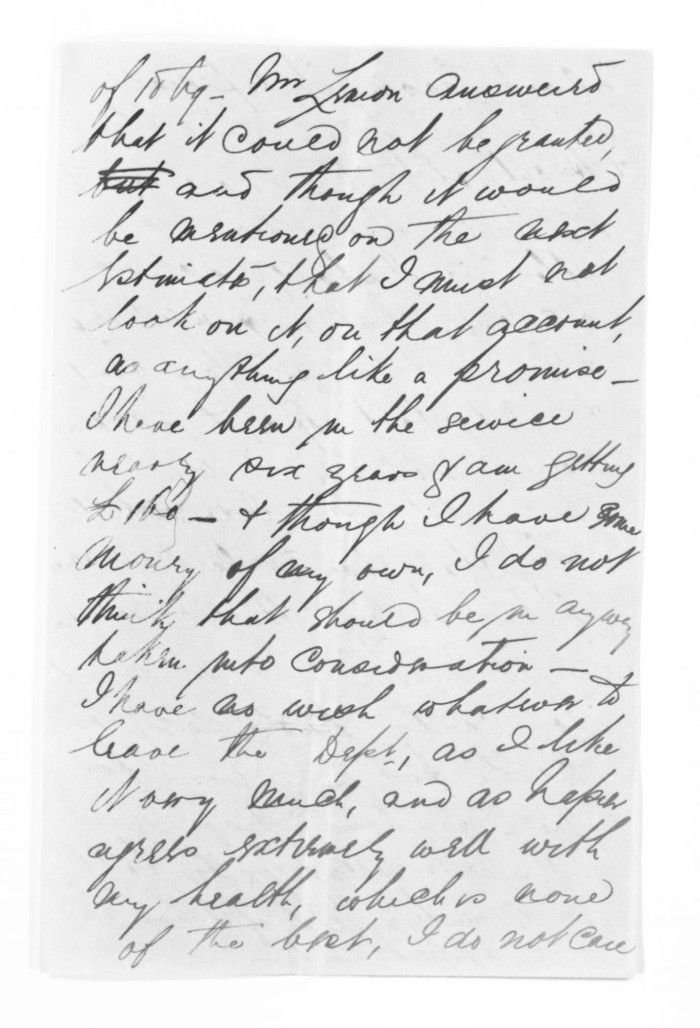 of 1869 - Mr Lemon answered
that it could not be granted,
but and though it would
be mentioned on the next
estimates, that I must not
look on it, on that account,
as anything like a promise -
I have been in the service
nearly six years & am getting
£160 - & though I have some
money of my own, I do not
think that should be in anyway
taken into consideration -
I have no wish whatever to
leave the Dept, as I like
it very much, and as Napier
agrees extremely well with
my health, which is none
of the best, I do not care